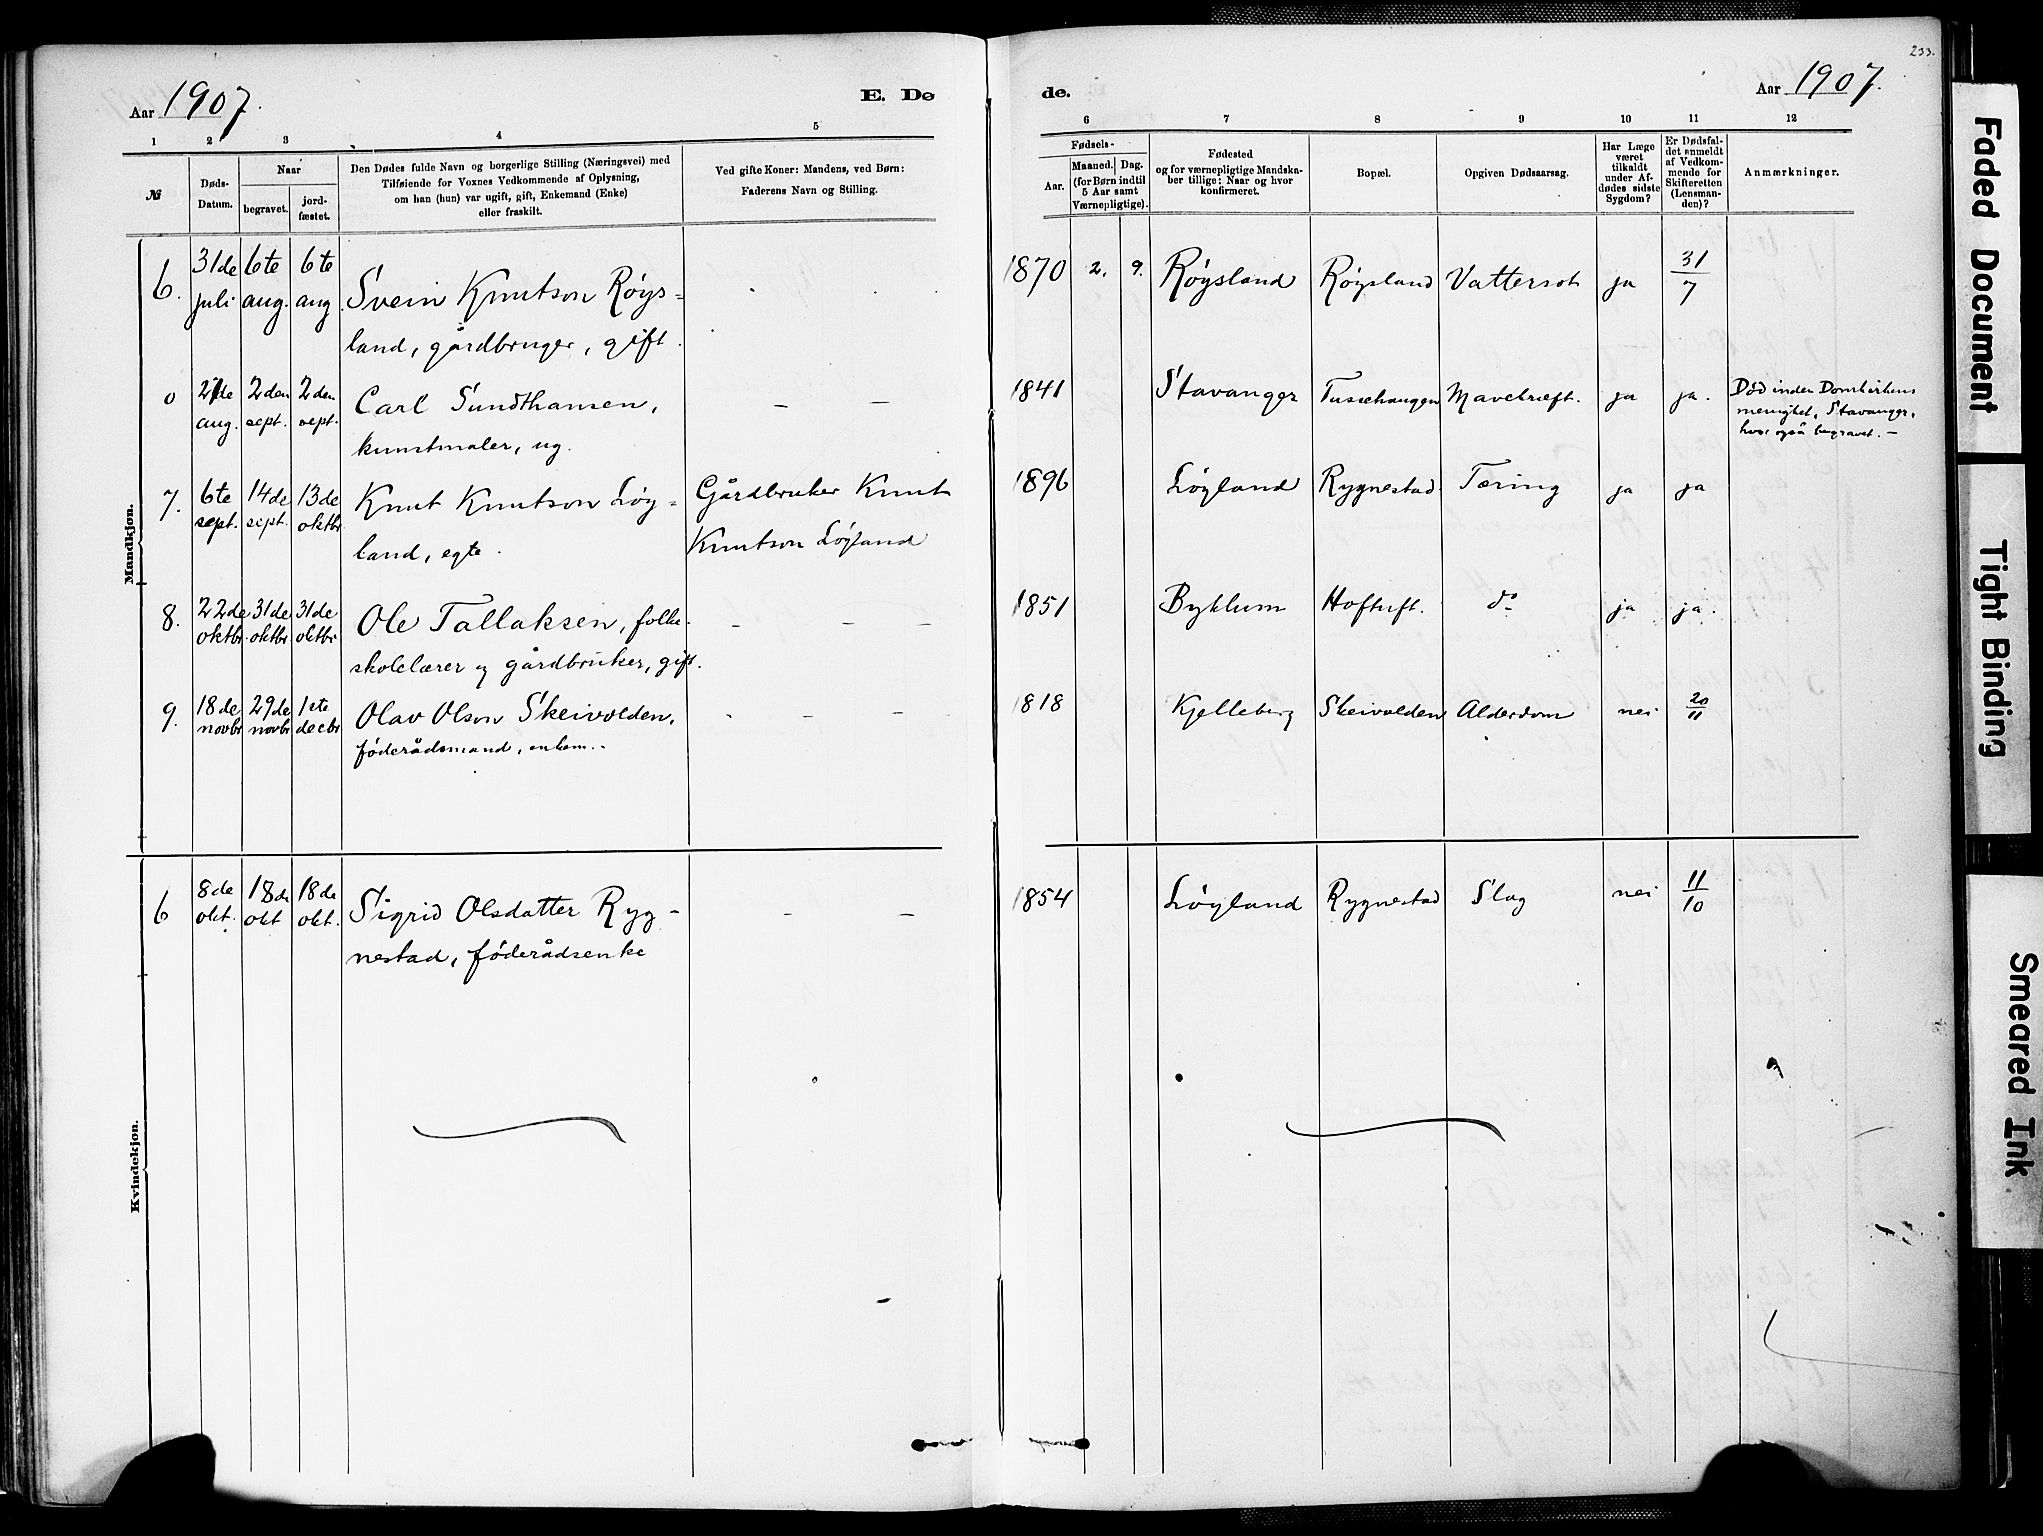 233.
Aar 1907. E. Dø
de. Aar 1907.
1 2 3 4 5
6 7 8 9 10 11 12
№
Døds-
Datum.
Naar
begravet.
jord-
fæstet.
Den Dødes fulde Navn og borgerlige Stilling (Næringsvei) med
Tilføiende for Voxnes Vedkommende af Oplysning,
om han (hun) var ugift, gift, Enkemand (Enke)
eller fraskilt.
Ved gifte Koner: Mandens, ved Børn:
Faderens Navn og Stilling.
Fødsels-
Aar.
Maaned. Dag.
(for Børn indtil
5 Aar samt
Værnepligtige).
Fødested
og for værnepligtige Mandska-
ber tillige: Naar og hvor
konfirmeret.
Bopæl.
Opgiven Dødsaarsag.
Har Læge
været
tilkaldt
under Af-
dødes sidste
Sygdom?
Er Dødsfal-
det anmeldt
af Vedkom-
mende for
Skifteretten
(Lensman-
den)?
Anmærkninger.
Mandkjøn.
6. 31de juli 6te aug. 6te aug. Svein Knutson Røys-
land, gårdbruger, gift. - - -
1870 2. 9. Røysland Røysland Vattersot ja 31/7
0 21de aug. 2den sept. 2den sept. Carl Sundthansen,
kunstmaler, ug. - -
1841 Stavanger Tussehaugen Mavekræft. ja ja. Død inden Domkirkens
menighet, Stavanger,
hvor også begravet. -
7. 6te sept. 14de sept. 13de oktbr Knut Knutson Løy-
land, egte. Gårdbruker Knut
Knutson Løyland
1896 Løyland Rygnestad Tæring ja ja
8. 22de oktbr. 31de oktbr 31de oktbr Ole Tallaksen, folke-
skolelærer og gårdbruker, gift. - - -
1851 Byklum Hoftuft. do ja ja.
9. 18de novbr 29de novbr 1ste decbr Olav Olson Skeivolden,
føderådsmand, enkem. - - -
1818 Kjelleberg Skeivolden Alderdom nei 20/11
Kvindekjøn.
6 8de okt. 18de okt 18de okt. Sigrid Olsdatter Ryg-
nestad, føderådsenke - -
1854 Løyland Rygnestad Slag nei 11/10
Faded Document
Tight Binding
Smeared Ink